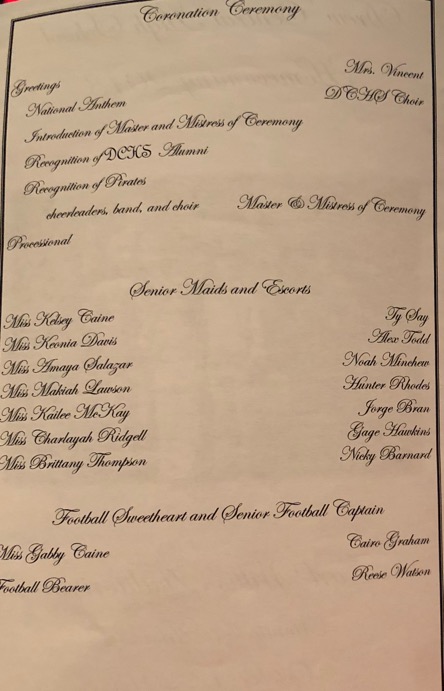 Coronation Ceremony
Greetings Mrs. Vincent
National Anthem DCHS Choir
Introduction of Master and Mistress of Ceremony
Recognition of DCHS Alumni
Recognition of Pirates
cheerleaders, band, and choir Master & Mistress of Ceremony
Processional
Senior Maids and Escorts
Miss Kelsey Caine Ty Say
Miss Keonia Davis Alex Todd
Miss Amaya Salazar Noah Minchew
Miss Makiah Lawson Hunter Rhodes
Miss Kailee McKay Jorge Bran
Miss Charlayah Ridgell Gage Hawkins
Miss Brittany Thompson Nicky Barnard
Football Sweetheart and Senior Football Captain
Miss Gabby Caine Cairo Graham
Football Bearer Reese Watson